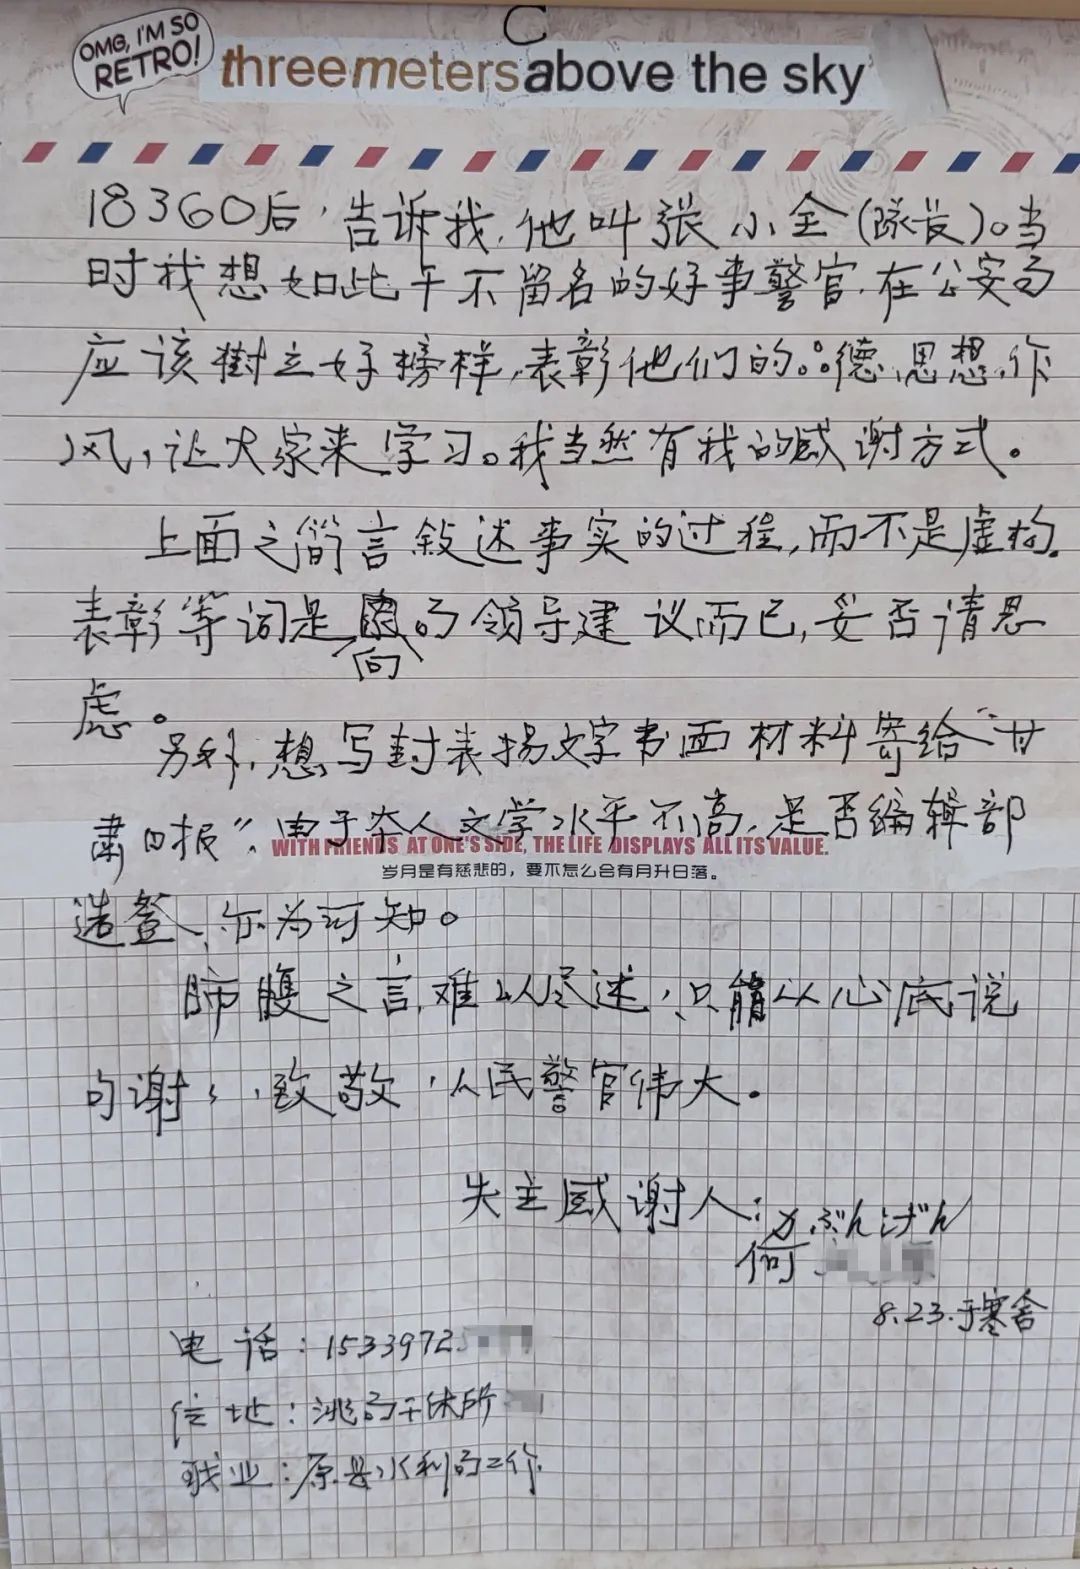 C
OMG, I'M SO
RETRO!
threemetersabove the sky
18360后,告诉我,他叫张小全(队长)。当
时我想如此干不留名的好事警官,在公安局
应该树立好榜样,表彰他们的。德,思想,作
风,让大家来学习。我当然有我的感谢方式。
上面之简言叙述事实的过程,而不是虚构。
表彰等词是向局领导建议而已,妥否请思
虑。
另外,想写封表扬文字书面材料寄给“甘
肃日报”。由于本人文学水平不高,是否编辑部
WITH FRIENDS AT ONE'S SIDE, THE LIFE DISPLAYS ALL ITS VALUE.
岁月是有慈悲的,要不怎么会有月升日落。
选登,亦为可知。
肺腹之言,难以尽述,只能以心底说
句谢谢,致敬,人民警官伟大。
失主感谢人:
か ぶん げん
何
8.23.于寒舍
电话:1533972
住址:洮局干休所
职业:原县水利局工作.